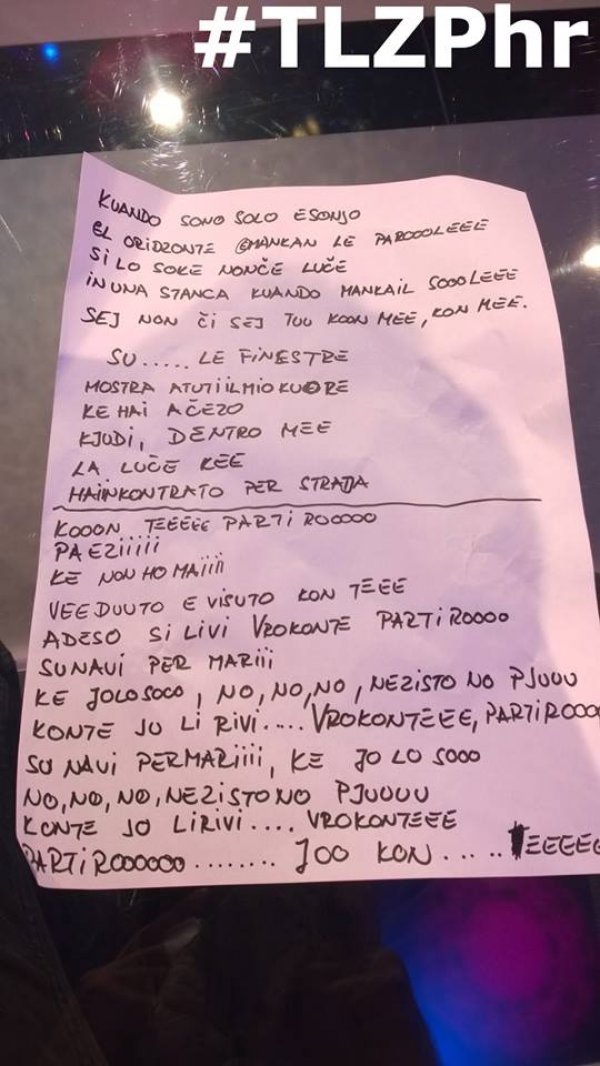 #TLZPhr
KUANDO SONO SOLO ESONJO
EL ORIDZONTE @MANKAN LE PAROOOLEEE
SI LO SOKE NONČE LUČE
IN UNA STANCA KUANDO MANKAIL SOOOLEEE
SEJ NON ČI SEJ TUU KOON MEE, KON MEE.
SU..... LE FINESTRE
MOSTRA ATUTI IL MIO KUORE
KE HAI AČEZO
KJUDI, DENTRO MEE
LA LUČE KEE
HAIINKONTRATO PER STRADA
KOOON TEEEEE PARTIROOOOO
PAEZIIIIII
KE NON HO MAIIII
VEEDUUTO E VISUTO KON TEEE
ADESO SI LIVI VROKONTE PARTIROOOO
SUNAVI PER MARIII
KE JOLOSOCO, NO, NO, NO, NEZISTO NO PJUUU
KONTE JO LI RIVI.... VROKONTEEE, PARTIROOOO
SU NAVI PERMARIIII, KE JO LO SOOO
NO, NO, NO, NEZISTO NO PJUUUU
KONTE JO LIRIVI.... VROKONTEEE
PARTIROOOOOO........ JOO KON..... TEEEEE